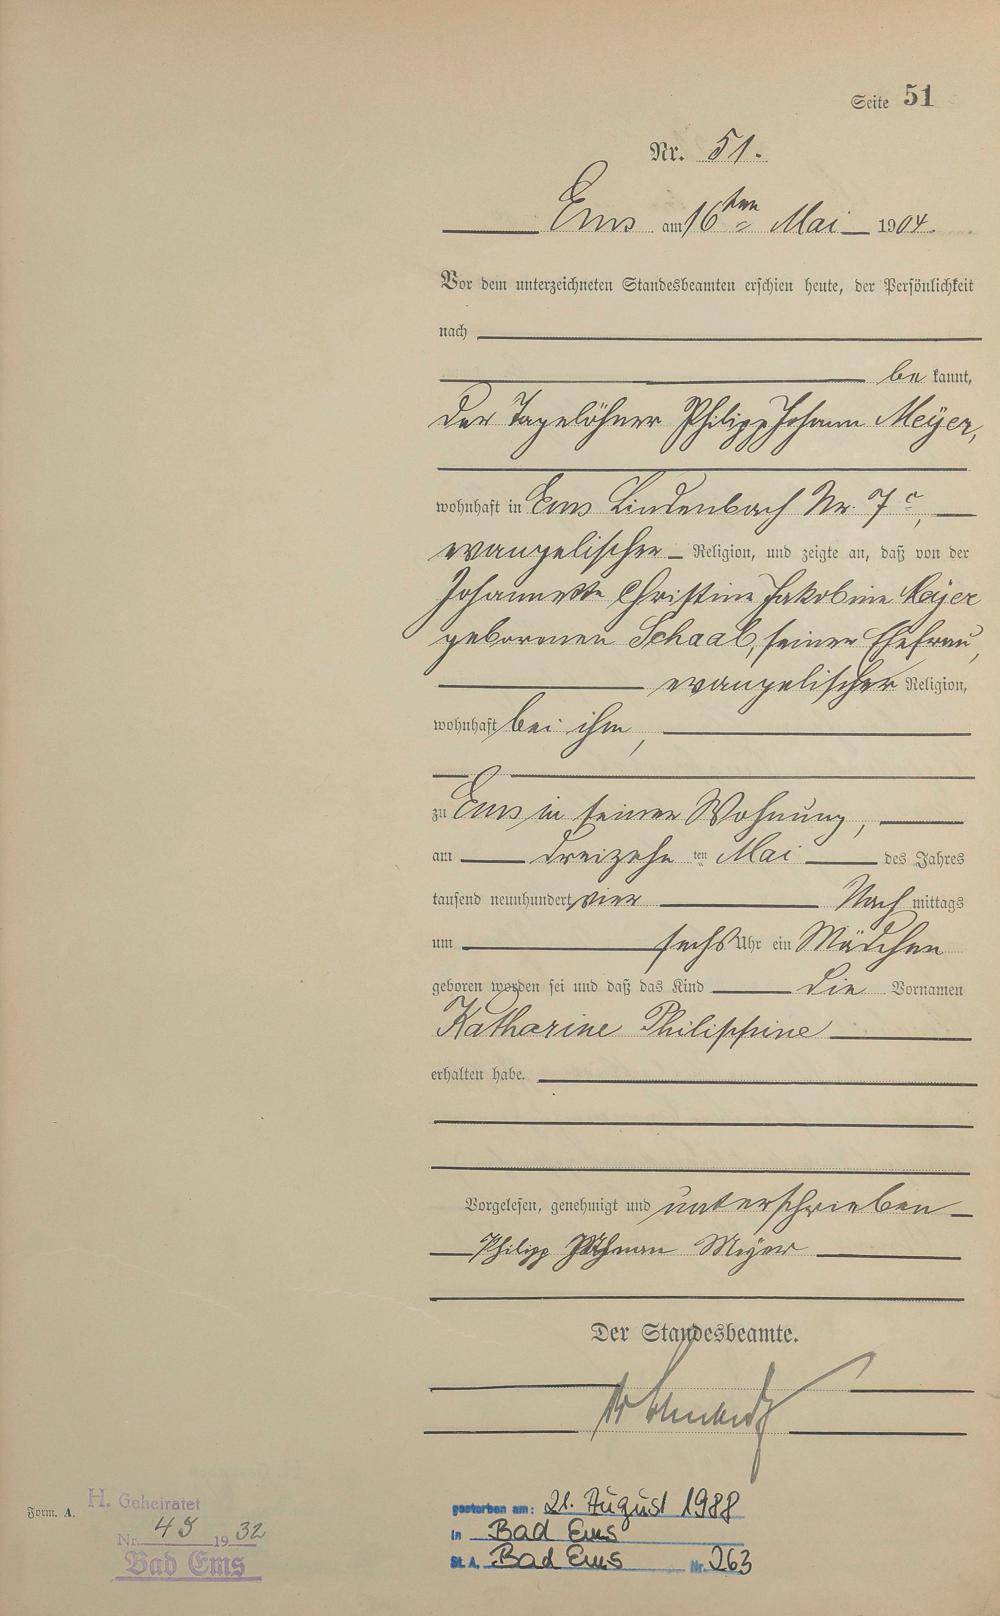 Seite 51
Nr. 51.
Ems am 16ten Mai 1904.
Vor dem unterzeichneten Standesbeamten erschien heute, der Persönlichkeit
nach
be kannt,
der Tagelöhner Philipp Johann Meÿer,
wohnhaft in Ems Lindenbach Nr. 7c,
evangelischer Religion, und zeigte an, daß von der
Johannette Christine Jakobine Meÿer
geborenen Schaab, seiner Ehefrau,
evangelischer Religion,
wohnhaft bei ihm,
zu Ems in seiner Wohnung,
am dreizehn ten Mai des Jahres
tausend neunhundert vier Nach mittags
um sechs Uhr ein Mädchen
geboren worden sei und daß das Kind die Vornamen
Katharine Philippine
erhalten habe.
Vorgelesen, genehmigt und unterschrieben
Philipp Johann Meÿer
Der Standesbeamte.
Form. A.
H. Geheiratet
Nr. 45 1932
Bad Ems
gestorben am: 21. August 1988
in Bad Ems
St. A. Bad Ems Nr. 263